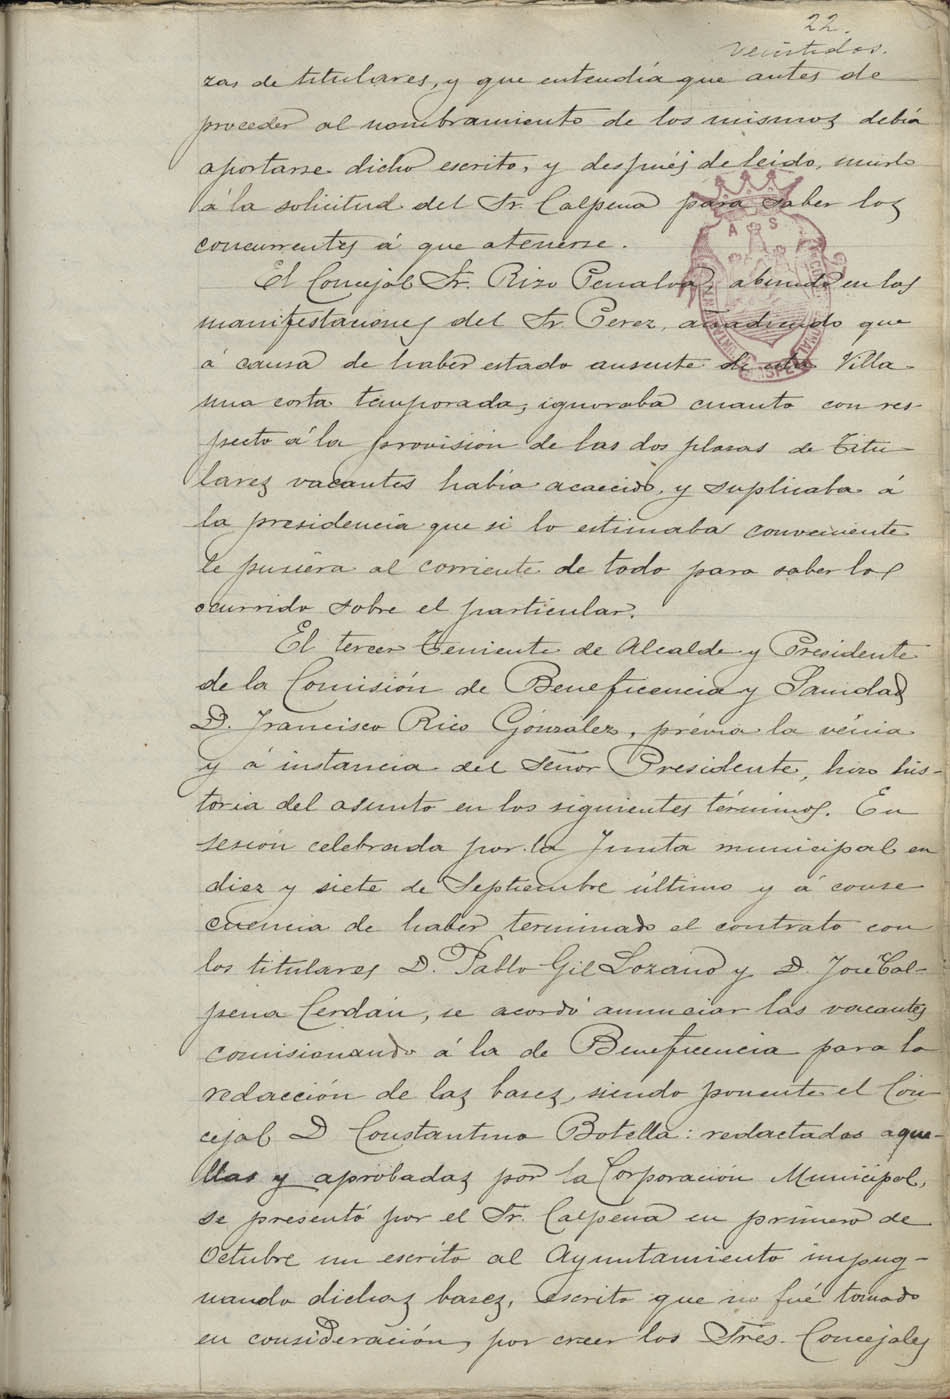 22.
Veintidos.
zas de titulares, y que entendía que antes de
proceder al nombramiento de los mismos debía
aportarse dicho escrito, y después de leido, unirlo
á la solicitud del Sr. Calpena para saber los
concurrentes á que atenerse.
El Concejal Sr. Rizo Penalva, abundó en las
manifestaciones del Sr. Perez, añadiendo que
á causa de haber estado ausente de esta Villa
una corta temporada, ignoraba cuanto con res-
pecto á la provisión de las dos plazas de Titu-
lares vacantes había acaecido, y suplicaba á
la presidencia que si lo estimaba conveniente
le pusiera al corriente de todo para saber lo
ocurrido sobre el particular.
El tercer Teniente de Alcalde y Presidente
de la Comisión de Beneficencia y Sanidad
D. Francisco Rico Gónzález, prévia la vénia
y á instancia del Señor Presidente, hizo his-
toria del asunto en los siguientes términos. En
sesión celebrada por la Junta municipal en
diez y siete de Septiembre último y á conse
cuencia de haber terminado el contrato con
los titulares D. Pablo Gil Lozano y D. José Cal-
pena Cerdán, se acordó anunciar las vacantes
comisionando á la de Beneficencia para la
redacción de las bases, siendo ponente el Con
cejal D Constantino Botella: redactadas aque-
llas y aprobadas por la Corporación Municipal,
se presentó por el Sr. Calpena en primero de
Octubre un escrito al Ayuntamiento impug-
nando dichas bases, escrito que no fué tomado
en consideración, por creer los Sres. Concejales